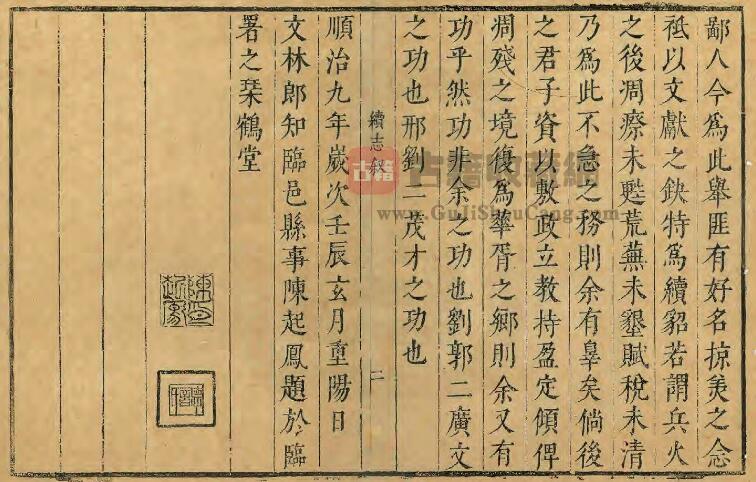 鄙人今爲此舉匪有好名掠美之念
祗以文獻之鈌特爲續貂若謂兵火
之後凋瘵未甦荒蕪未墾賦稅未清
乃爲此不急之務則余有辠矣倘後
之君子資以敷政立教持盈定傾俾
凋殘之境復爲華胥之鄉則余又有
功乎然功非余之功也劉郭二廣文
之功也邢劉二茂才之功也
續志叙 二
順治九年嵗次壬辰玄月重陽日
文林郎知臨邑縣事陳起鳳題於臨
署之琹鶴堂
陳印起鳳
古籍
古籍收藏網
www.GuJiShouCang.com